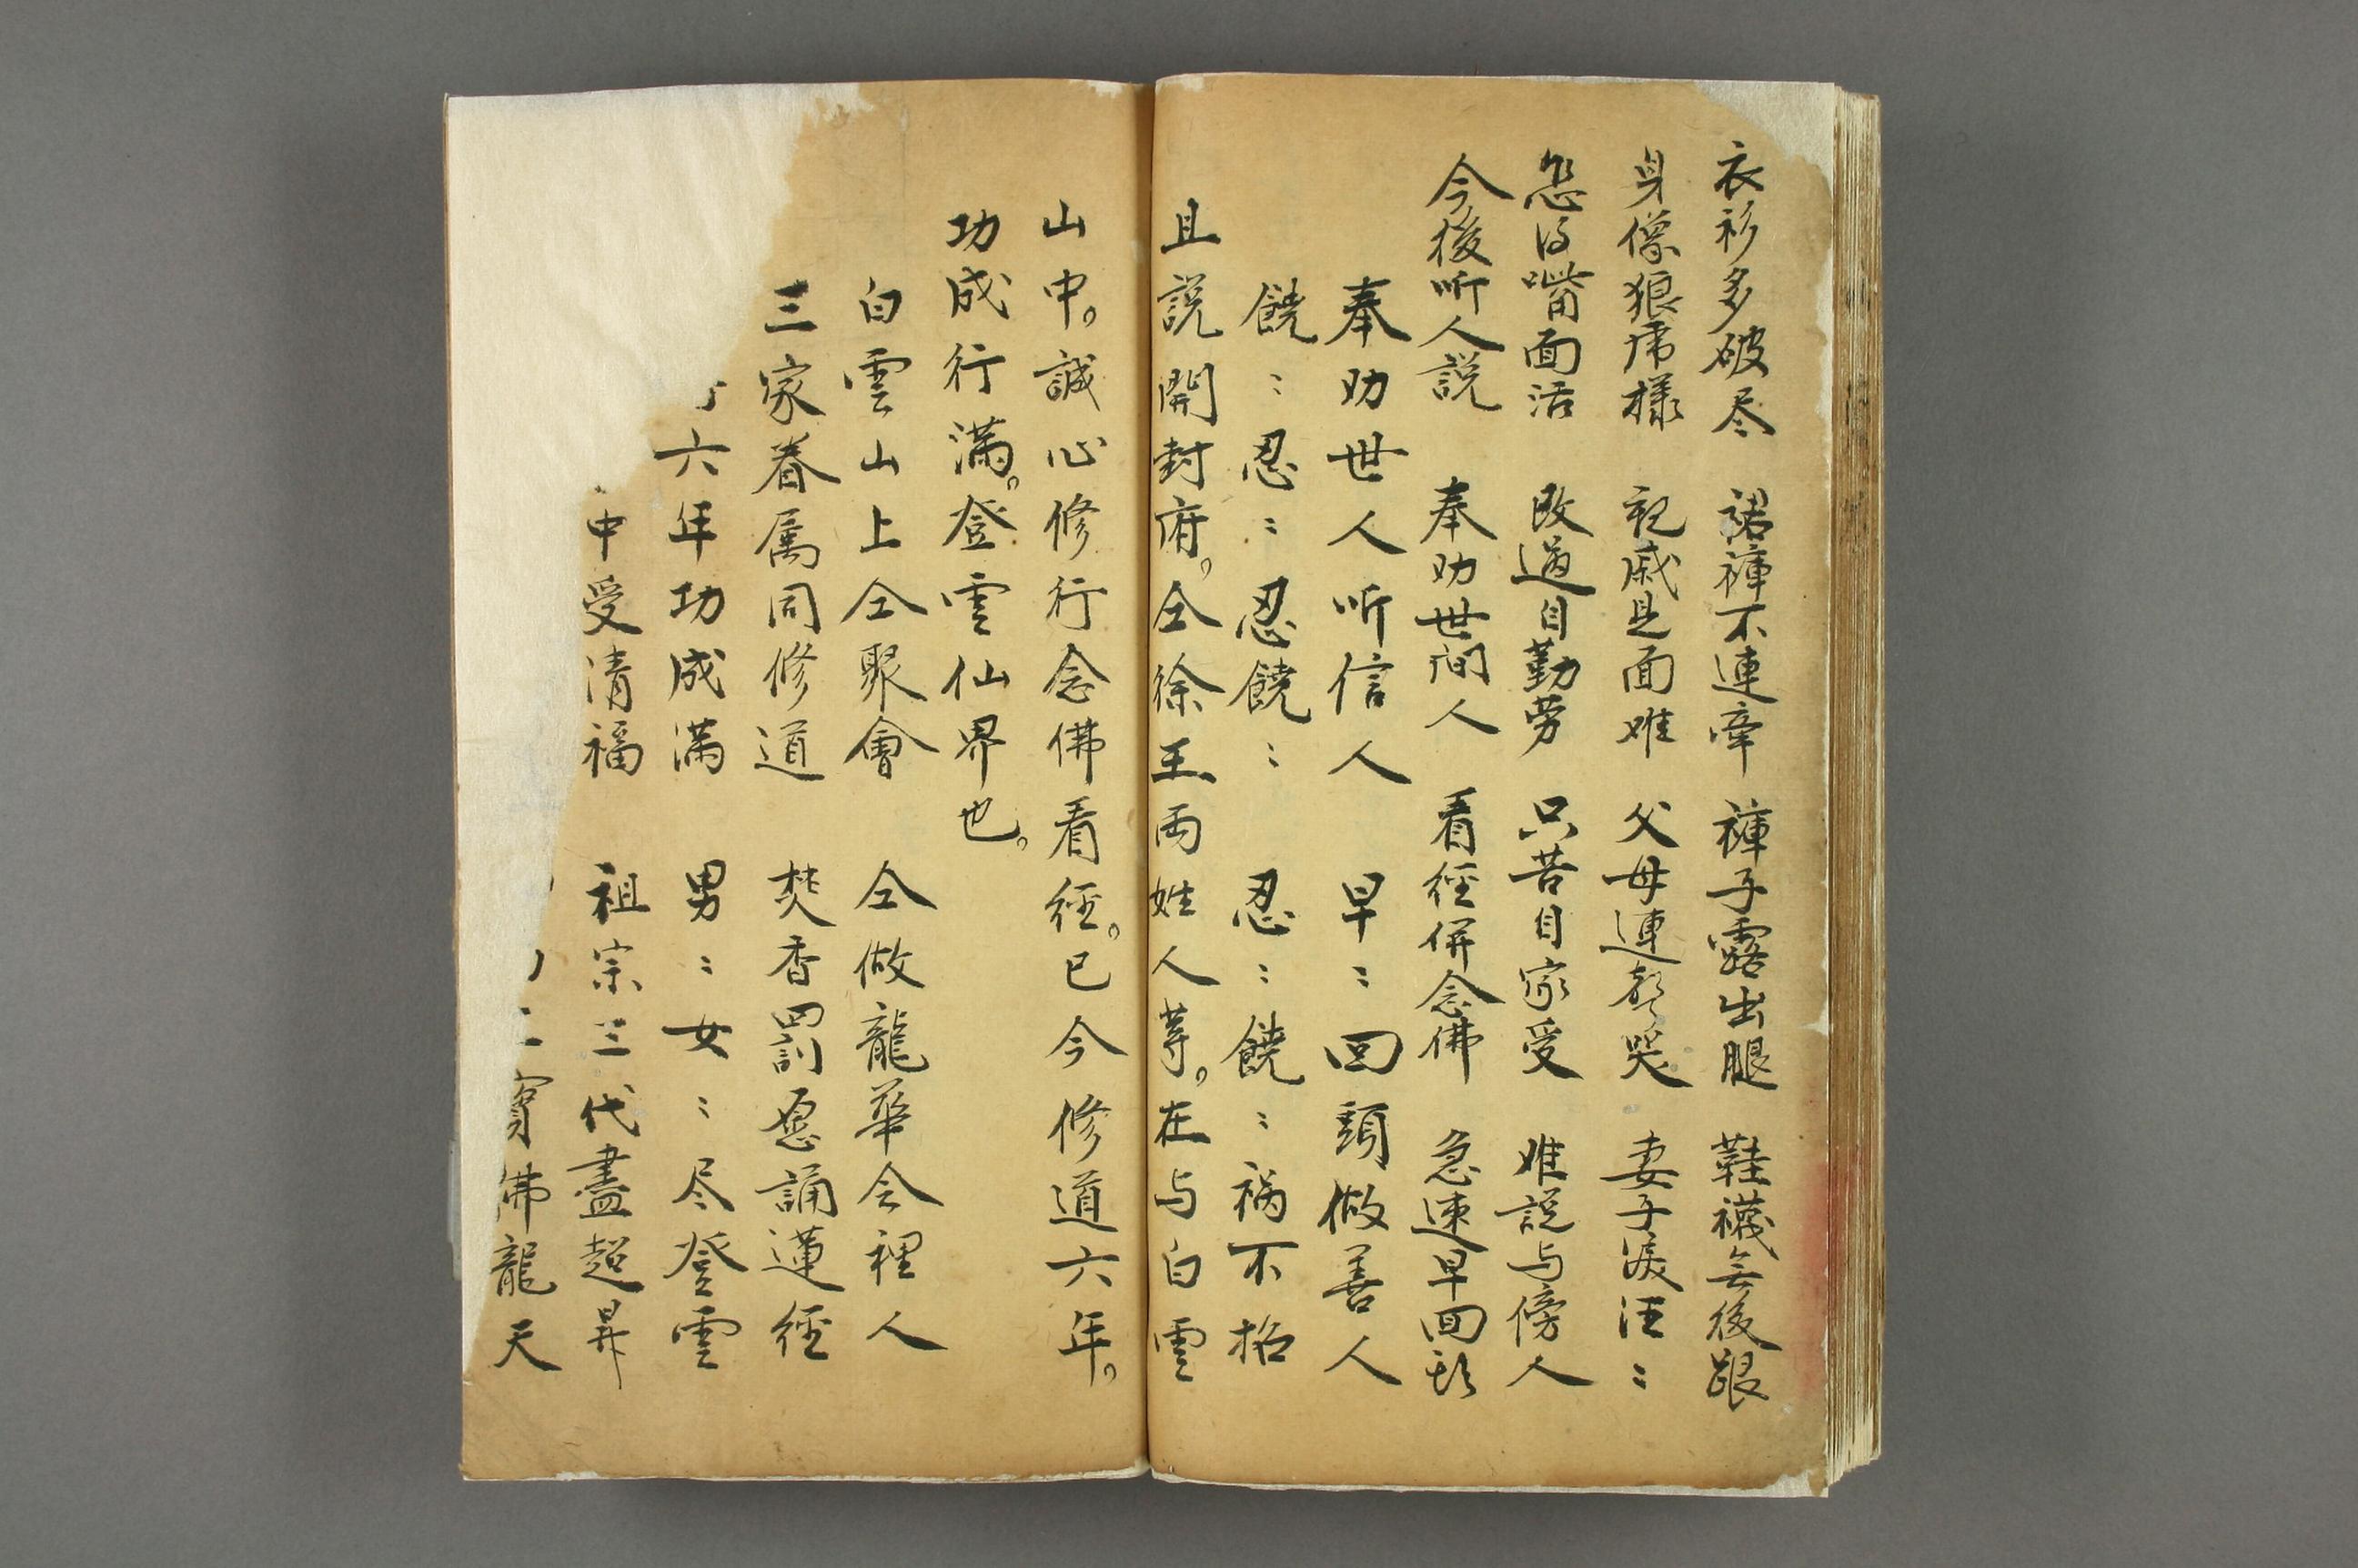 衣衫多破尽 裙褲不連牵 褲子露出腿 鞋襪無後跟
身像狼虎樣 親戚見面难 父母連声哭 妻子淚汪：
怎得嘴面活 改過自勤劳 只苦自家受 难説与傍人
今後听人説 奉劝世间人 看經併念佛 急速早回頭
奉劝世人听信人 早：回頭做善人
饒：忍：忍饒： 忍：饒：祸不招
且説開封府。仝徐王両姓人等。在与白雲
山中。誠心修行念佛看經。已今修道六年。
功成行滿。登雲仙界也。
白雲山上仝聚會 仝做龍華会裡人
三家眷属同修道 焚香罰愿誦蓮經
六年功成满 男：女：尽登雲
中受清福 祖宗三代盡超昇
寳佛龍天